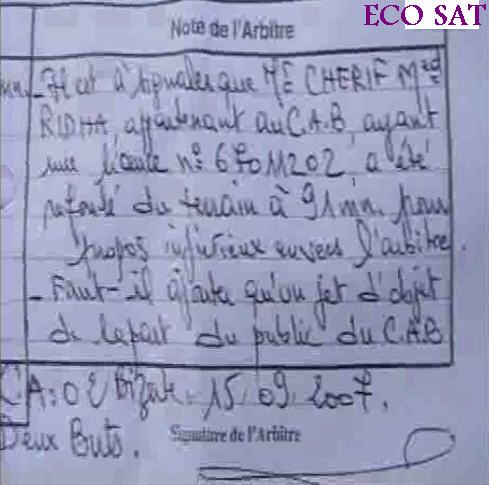 ECO SAT
Note de l'Arbitre
- Il est à signaler que Mr CHERIF Med
RIDHA appartenant au C.A.B, ayant
une licence n° 670M202, a été
refoulé du terrain à 91mn. pour
propos injurieux envers l'arbitre.
- Faut-il ajouter qu'un jet d'objet
de la part du public du C.A.B
CA: 02 Bizerte. 15/09/2007.
Deux Buts. Signature de l'Arbitre